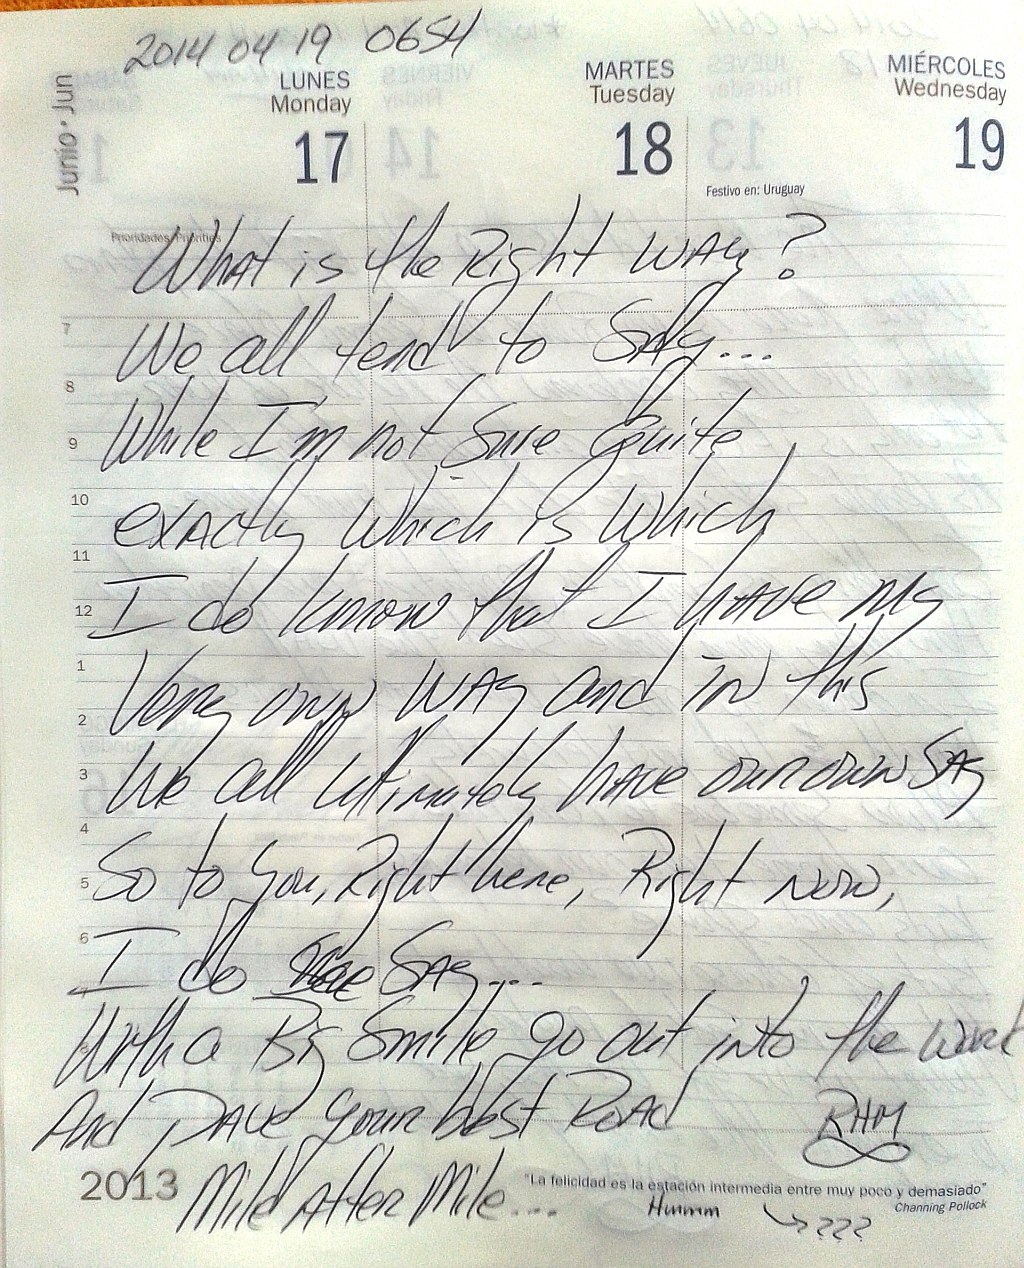 2014 04 19 0654
Junio • Jun
LUNES
Monday
17
MARTES
Tuesday
18
MIÉRCOLES
Wednesday
19
Festivo en: Uruguay
Prioridades/Priorities
What is the Right WAy?
We all tend to SAy...
While I'm not Sure Quite
exActly which is which
I do know that I hAVE my
Very own WAy and in this
We all Ultimately hAVE our own SAy
So to you, Right here, Right now,
I do SAy...
With a Big Smile go out into the World
And PAVE your best ROAD
Mile After Mile....
RHM
7
8
9
10
11
12
1
2
3
4
5
6
2013
"La felicidad es la estación intermedia entre muy poco y demasiado"
Channing Pollock
Hmmm → ???